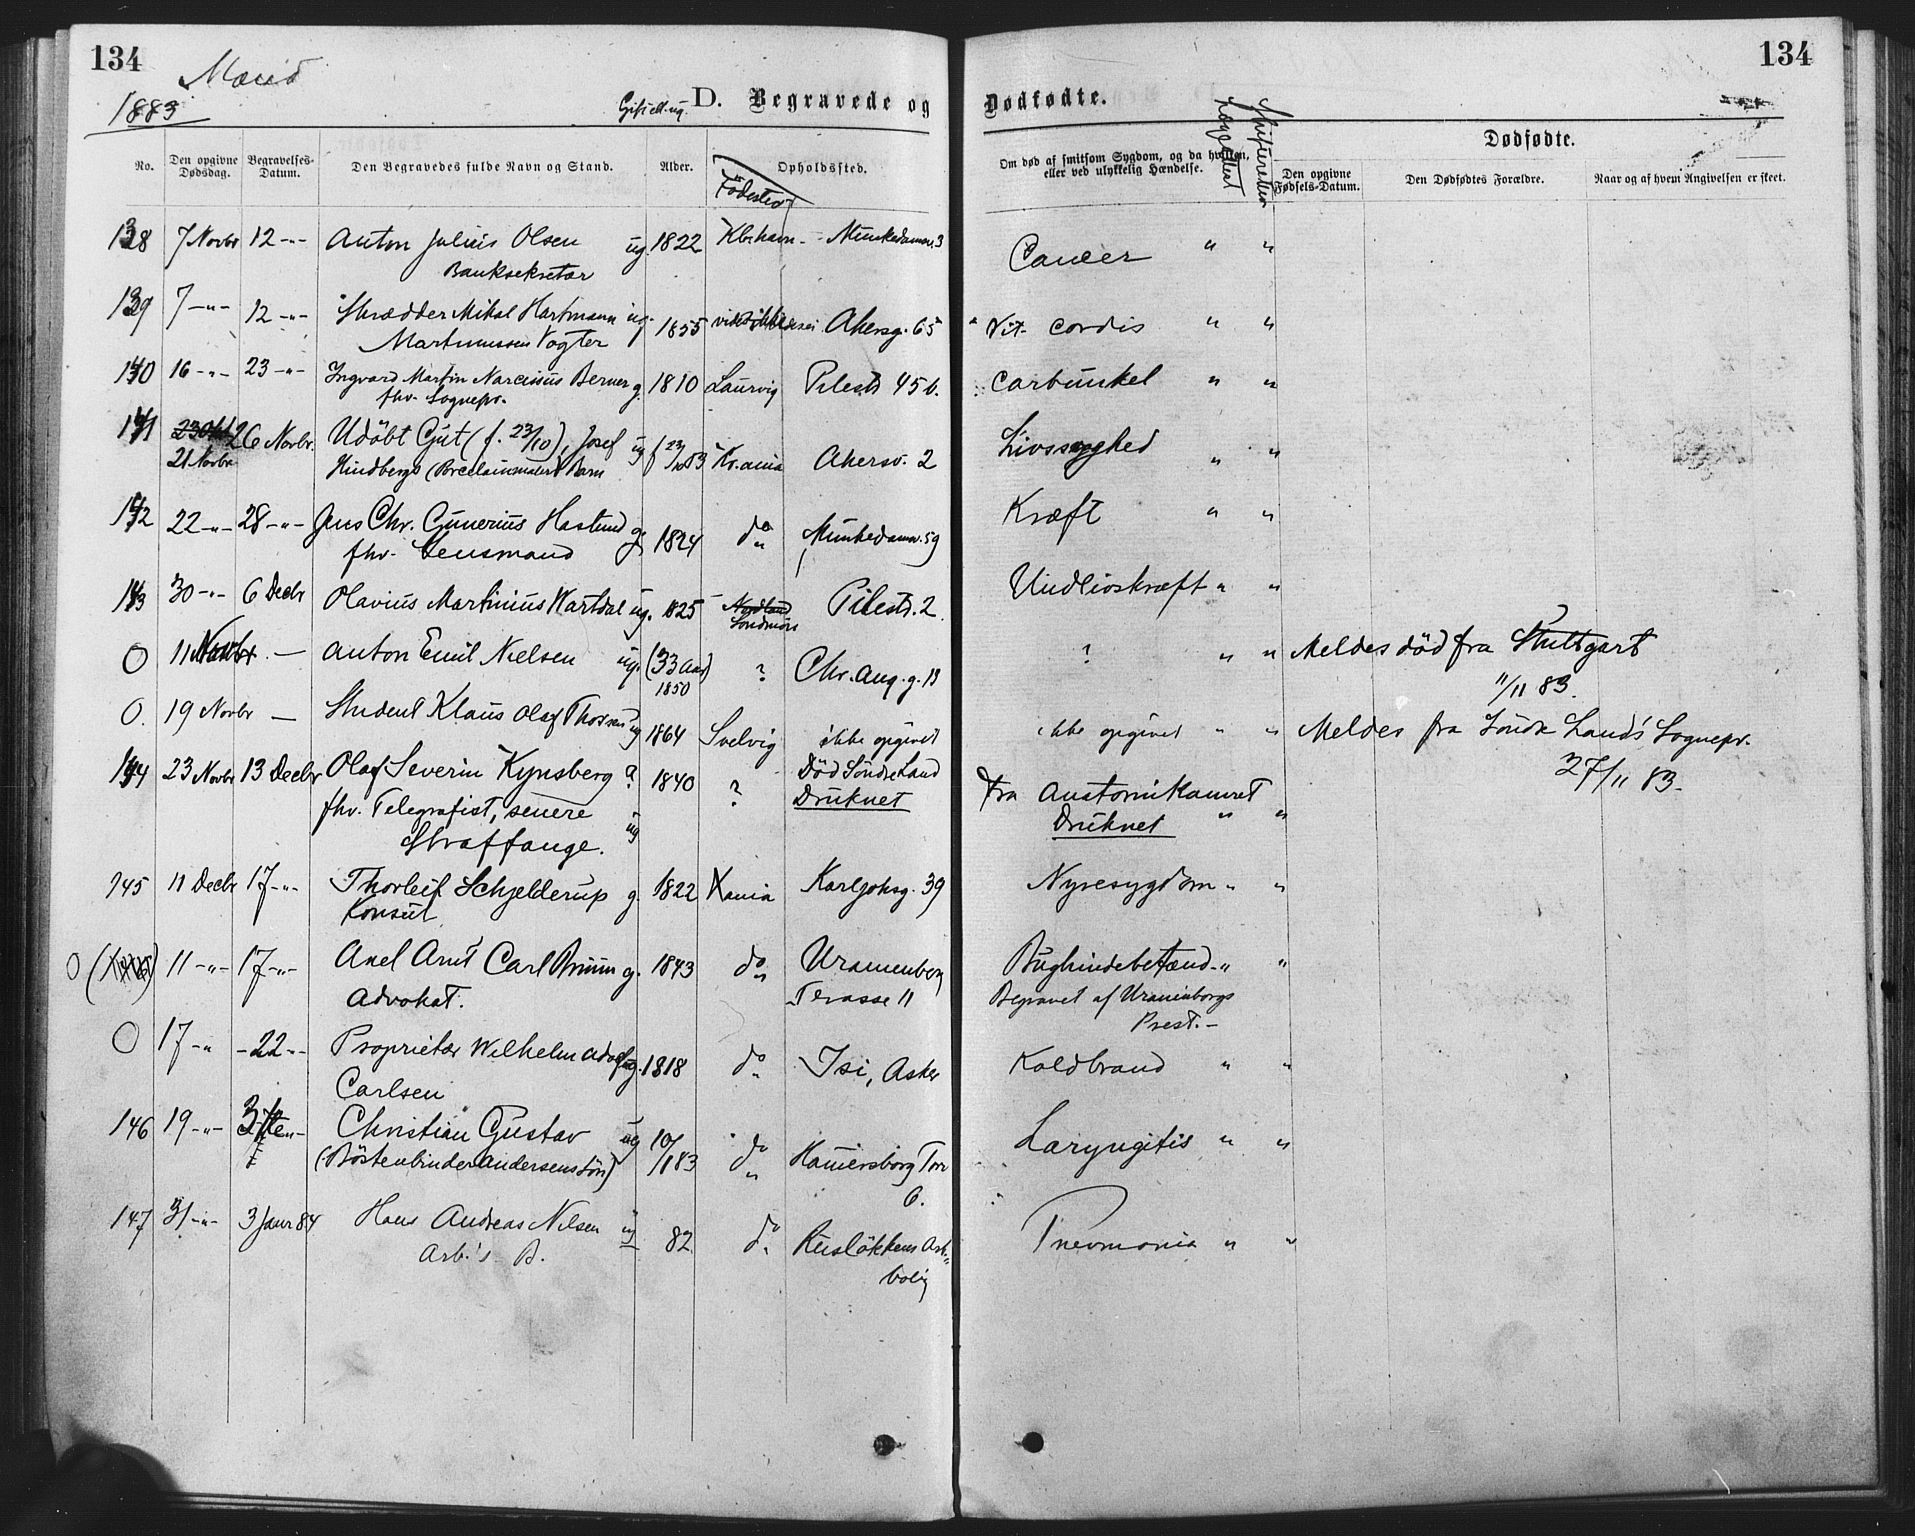 134
Mænd
1883
Gift ell. ug.
D. Begravede og
No.
Den opgivne Dødsdag.
Begravelses-Datum.
Den Begravedes fulde Navn og Stand.
Alder.
Födested
Opholdssted.
138 7 Novbr 12 -"- Anton Julius Olsen ug. 1822 Kbhavn - Munkedamsv. 3
Banksekretær
139 7 -"- 12 -"- Skrædder Mikal Hartmann ug. 1855 Akersg. 65
Martinussen Vogter
140 16 -"- 23 -"- Ingvard Martin Narcissus Berner g. 1810 Laurvig Pilestr 45 b.
fhv. Sognepr.
141 23 Okt 26 Novbr. Udöbt Gut (f. 23/10), Josef ug f 23/10 83 Kr.ania Akersv. 2
21 Novbr Hindbergs (Porcelainsmaler) Barn
142 22 -"- 28 -"- Jens Chr. Gunerius Haslund g. 1824 do " Munkedamsv. 59
fhv. Lensmand
143 30 -"- 6 Decbr Olavius Martinius Wartdal ug. 1825 Nordland Pilestr. 2.
Söndmöre
0 11 Novbr. — Anton Emil Nielsen ug. (33 Aar) ? Chr. Aug. g. 19
1850
0. 19 Novbr — Student Klaus Olaf Thoresen ug 1864 Svelvig ikke opgivet
144 23 Novbr 13 Decbr Olaf Severin Kynsberg ? 1840 ? Död Söndre Land
fhv. Telegrafist, senere ug Druknet
Straffange.
145 11 Decbr 17 -"- Thorleif Schjelderup g. 1822 Xania Karljohsg. 39
Konsul
0 11 -"- 17 -"- Axel Arnt Carl Bruun g. 1843 do " Uranienborg
Advokat. Terasse 11
0 17 -" -22 -- Proprietær Wilhelm Adolf ug. 1818 do " Isi, Asker
Carlsen
146 19 -"- Christian Gustav ug 10/11 83 do " Hamersborg Torv
(Börstenbinder Andersens Sön) 6.
147 31 -"- 3 Janr 84 Hans Andreas Nilsen ug 82 do " Ruslökkens Arb.
Arb.'s B. bolig
134
Dødfødte.
Om død af smitsom Sygdom, og da hvilken, eller ved ulykkelig Hændelse.
Lægeattest
Skifteretten
Dødfødte.
Den opgivne Fødsels-Datum.
Den Dødfødtes Forældre.
Naar og af hvem Angivelsen er skeet.
Cancer " "
Vit. cordis " "
Carbunkel " "
Livssvaghed " "
Kræft " "
Undlivskræft " "
? " " Meldes död fra Stuttgart
11/11 83.
ikke opgivet " " Meldes fra Söndre Land's Sognepr.
27/11 83.
fra Anatomikamret
Druknet " "
Nyresygdom " "
Bughindebetænd. " "
Begravet af Uranienborgs
Prest. -
Koldbrand " "
Laryngitis " "
Pnevmonia " "